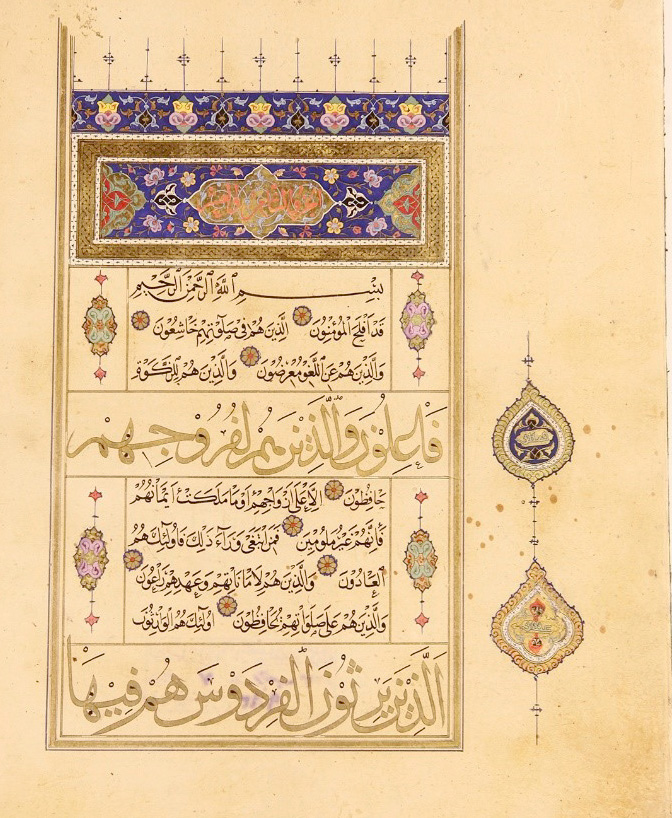 بِسْمِ اللَّهِ الرَّحْمَنِ الرَّحِيمِ
قَدْ اَفْلَحَ الْمُؤْمِنُونَ الَّذِينَ هُمْ فِي صَلَوتِهِمْ خَاشِعُونَ
وَالَّذِينَ هُمْ عَنِ اللَّغْوِ مُعْرِضُونَ وَالَّذِينَ هُمْ لِلزَّكَوةِ
فَاعِلُونَ وَالَّذِينَ هُمْ لِفُرُوجِهِمْ
حَافِظُونَ اِلَّا عَلَى اَزْوَاجِهِمْ اَوْ مَا مَلَكَتْ اَيْمَانُهُمْ
فَاِنَّهُمْ غَيْرُ مَلُومِينَ فَمَنِ ابْتَغَى وَرَآءَ ذَلِكَ فَاُولَئِكَ هُمُ
الْعَادُونَ وَالَّذِينَ هُمْ لِاَمَانَاتِهِمْ وَعَهْدِهِمْ رَاعُونَ
وَالَّذِينَ هُمْ عَلَى صَلَوَاتِهِمْ يُحَافِظُونَ اُولَئِكَ هُمُ الْوَارِثُونَ
الَّذِينَ يَرِثُونَ الْفِرْدَوْسَ هُمْ فِيهَا